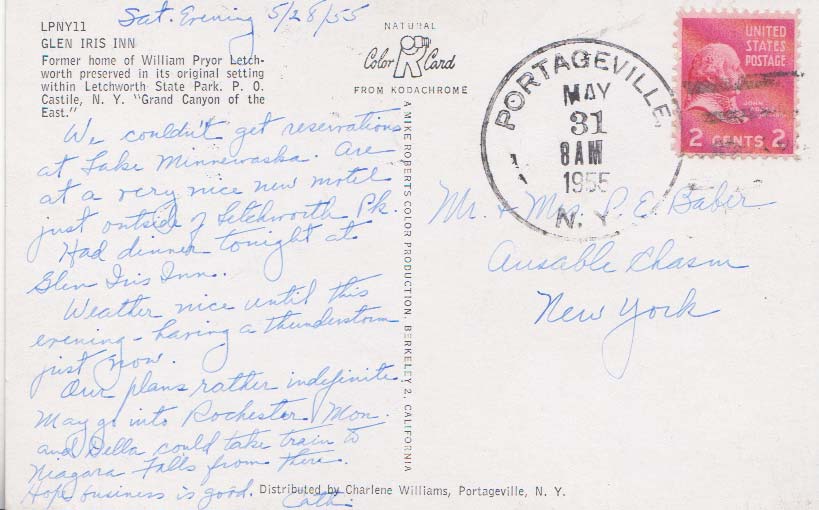 Sat. Evening 5/28/55
LPNY11
GLEN IRIS INN
Former home of William Pryor Letch-
worth preserved in its original setting
within Letchworth State Park. P. O.
Castile, N. Y. "Grand Canyon of the
East."
We couldn't get reservations
at Lake Minnewaska. Are
at a very nice new motel
just outside of Letchworth Pk.
Had dinner tonight at
Glen Iris Inn.
Weather nice until this
evening - having a thunderstorm
just now.
Our plans rather indefinite.
May go into Rochester Mon.
and Della could take train to
Niagara Falls from there.
Hope business is good.
Cath.
NATURAL
Color Card
FROM KODACHROME
A MIKE ROBERTS COLOR PRODUCTION, BERKELEY 2, CALIFORNIA
Distributed by Charlene Williams, Portageville, N. Y.
PORTAGEVILLE,
MAY
31
8 AM
1955
N. Y.
UNITED
STATES
POSTAGE
JOHN
2 CENTS 2
Mr. + Mrs. P. E. Baber
Ausable Chasm
New York